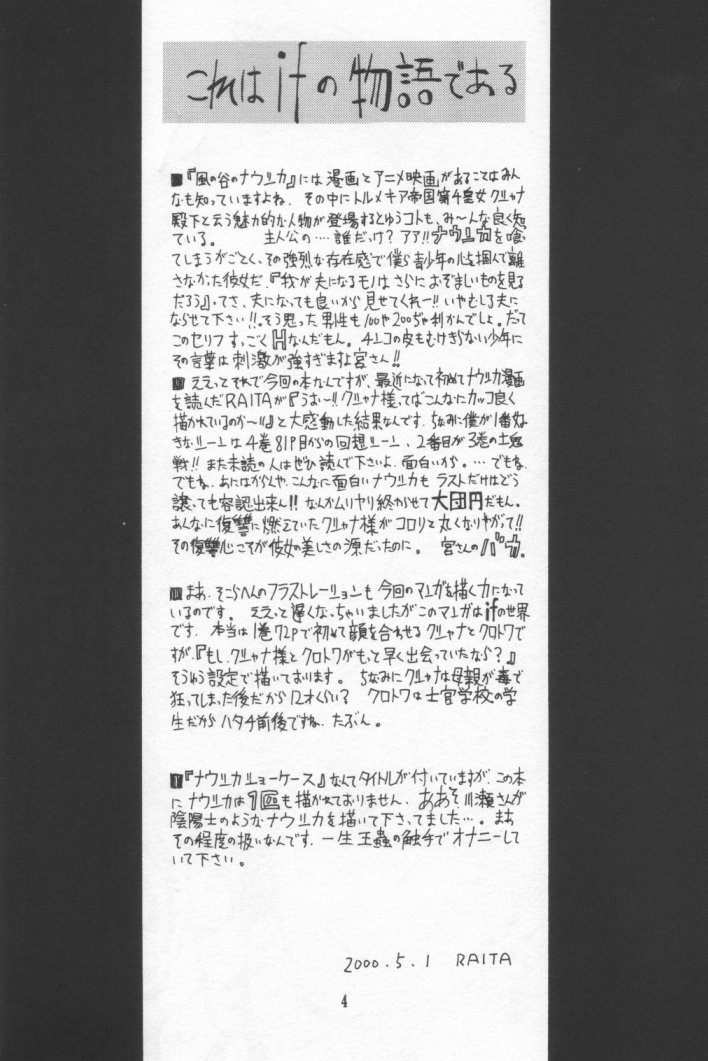 これは if の物語である
■『風の谷のナウシカ』には漫画とアニメ映画があることはみん
なも知っていますよね。その中にトルメキア帝国第4皇女クシャナ
殿下と云う魅力的な人物が登場するとゆうコトも、み〜んな良く知
ている。 主人公の…誰だっけ?アア!!ナウシカを喰
てしまうがごとく、その強烈な存在感で僕ら青少年の心を掴んで離
さなかった彼女だ。『我が夫になるモノはさらにおぞましいものを見る
だろう』ってさ、夫になっても良いから見せてくれー!!いやむしろ夫に
ならせて下さい!!。そう思った男性も100や200ぢゃ利かんでしょ。だって
このセリフすっごくHなんだもん。チンコの皮もむけきらない少年に
その言葉は刺激が強すぎますよ宮さん!!
■ ええっとそれで今回の本なんですが、最近になって初めてナウシカ漫画
を読んだRAITAが『うお〜!!クシャナ様ってばこんなにカッコ良く
描かれているのか〜!!』と大感動した結果なんです。ちなみに僕が1番好
きなシーンは4巻81P目からの回想シーン、2番目が3巻の土鬼
戦!!また未読の人はぜひ読んで下さいよ、面白いから。…でもね
でもね、おにはがんや、こんなに面白いナウシカも ラストだけはどう
譲っても容認出来ん!!なんかムリヤリ終わらせて大団円だもん。
あんなに復讐に燃えていたクシャナ様がコロリと丸くなりやがって!!
その復讐心こそが彼女の美しさの源だったのに。 宮さんのバカ。
■まあ、そこらへんのフラストレーションも今回のマンガを描く力になって
いるのです。 ええっと遅くなっちゃいましたがこのマンガはifの世界
です。 本当は1巻72Pで初めて顔を合わせるクシャナとクロトワで
すが、『もし、クシャナ様とクロトワがもっと早く出会っていたなら?』
そうゆう設定で描いております。 ちなみにクシャナは母親が毒で
狂ってしまった後だから12才くらい? クロトワは士官学校の学
生だから ハタチ前後ですね、たぶん。
■『ナウシカショーケース』なんてタイトルが付いていますが、この本
に ナウシカは1回も描かれておりません。 ああそ、川瀬さんが
陰陽士のようなナウシカを描いて下さってました…。まあ
その程度の扱いなんです。一生王蟲の触手でオナニーして
いて下さい。
2000.5.1 RAITA
4